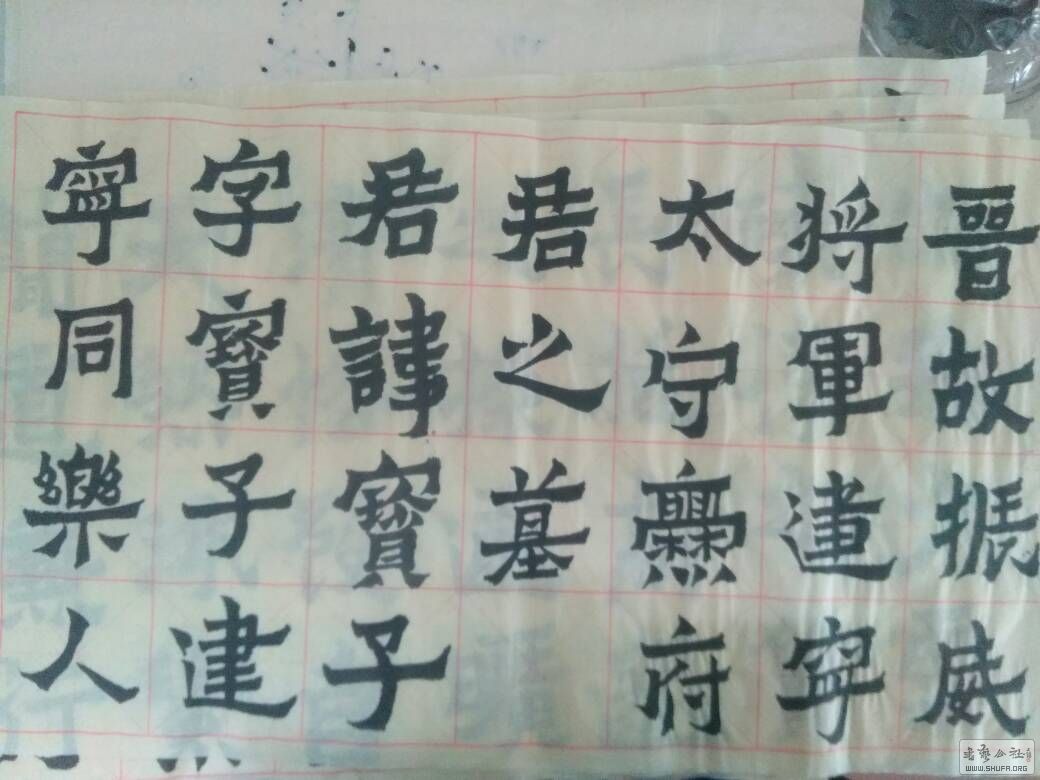 晉故振威
將軍建寧
太守爨府
君之墓
君諱寶子
字寶子建
寧同樂人
書藝公社
WWW.SHUFA.ORG